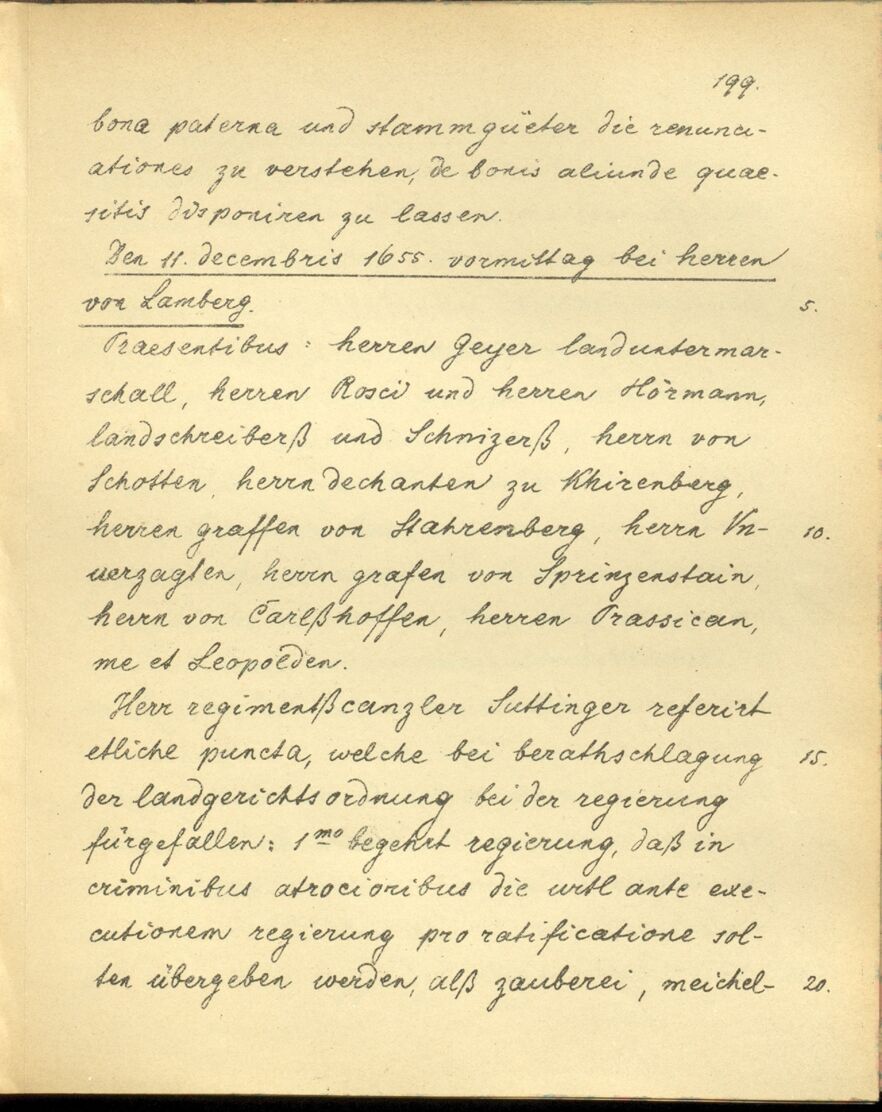 199.
bona paterna und stammgüeter die renunci-
ationes zu verstehen, de bonis aliunde quae-
sitis disponiren zu lassen.
Den 11. decembris 1655. vormittag bei herren
von Lamberg. 5.
Praesentibus: herren Geyer landuntermar-
schall, herren Rosci und herren Hörmann,
landschreiberß und Schnizerß, herrn von
Schotten, herrn dechanten zu Khirenberg,
herren graffen von Stahremberg, herrn Vn- 10.
uerzagten, herrn grafen von Sprinzenstain,
herrn von Carlßhoffen, herren Prassican,
me et Leopolden.
Herr regimentßcanzler Suttinger referirt
etliche puncta, welche bei berathschlagung 15.
der landgerichtsordnung bei der regierung
fürgefallen: 1mo begehrt regierung, daß in
criminibus atrocioribus die urtl ante exe-
cutionem regierung pro ratificatione sol-
ten übergeben werden, alß zauberei, meichel- 20.